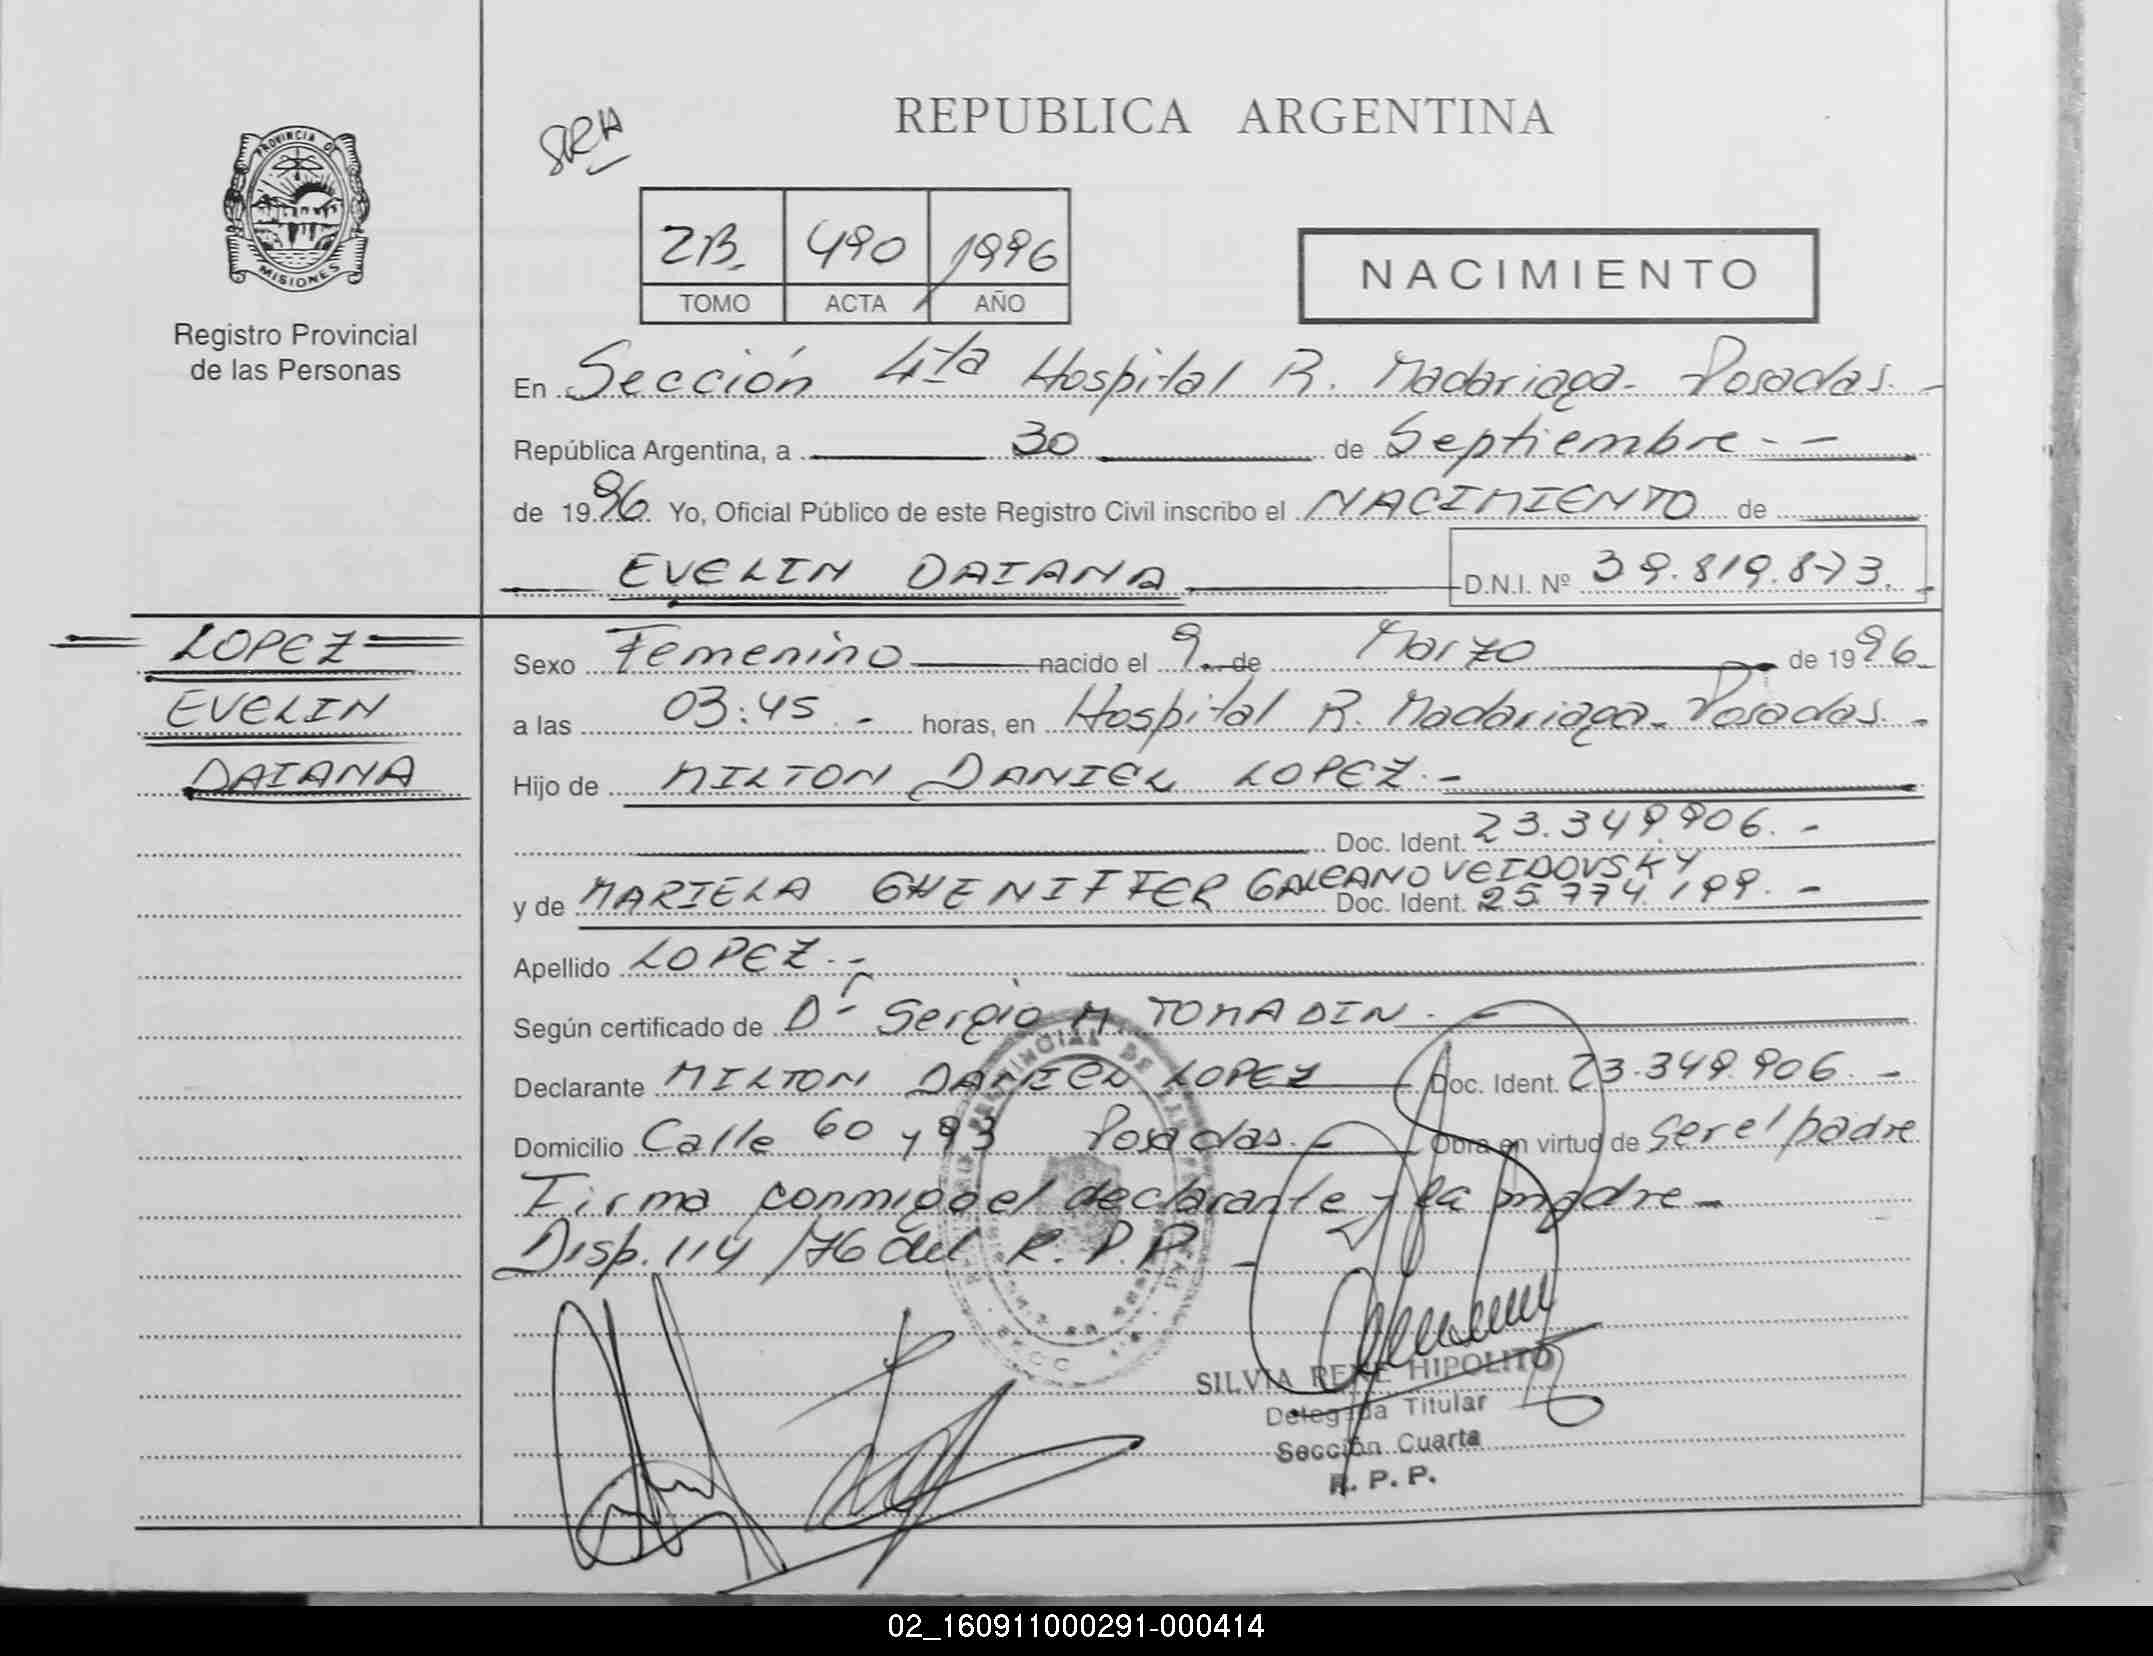 REPUBLICA ARGENTINA
SRH
PROVINCIA DE
MISIONES
Registro Provincial
de las Personas
2B. 490 1996
TOMO ACTA AÑO
NACIMIENTO
En Sección 4ta Hospital R. Madariaga - Posadas. -
República Argentina, a 30 de Septiembre - -
de 1996 Yo, Oficial Público de este Registro Civil inscribo el NACIMIENTO de
EVELIN DAIANA D.N.I. Nº 39.819.873. -
LOPEZ
EVELIN
DAIANA
Sexo Femenino nacido el 9 de Marzo de 1996
a las 03:45 - horas, en Hospital R. Madariaga - Posadas. -
Hijo de MILTON DANIEL LOPEZ. -
Doc. Ident. 23.349.906. -
y de MARIELA GHENIFFER GALEANO VEIDOVSKY Doc. Ident. 25.774.199. -
Apellido LOPEZ. -
Según certificado de Dr Sergio M. TOMADIN. -
Declarante MILTON DANIEL LOPEZ Doc. Ident. 23.349.906. -
Domicilio Calle 60 y 93 Posadas. - Obra en virtud de ser el padre
Firma conmigo el declarante y la madre -
Disp. 114/76 del R.P.P. -
SILVIA RENE HIPOLITO
Delegada Titular
Sección Cuarta
R. P. P.
02_160911000291-000414